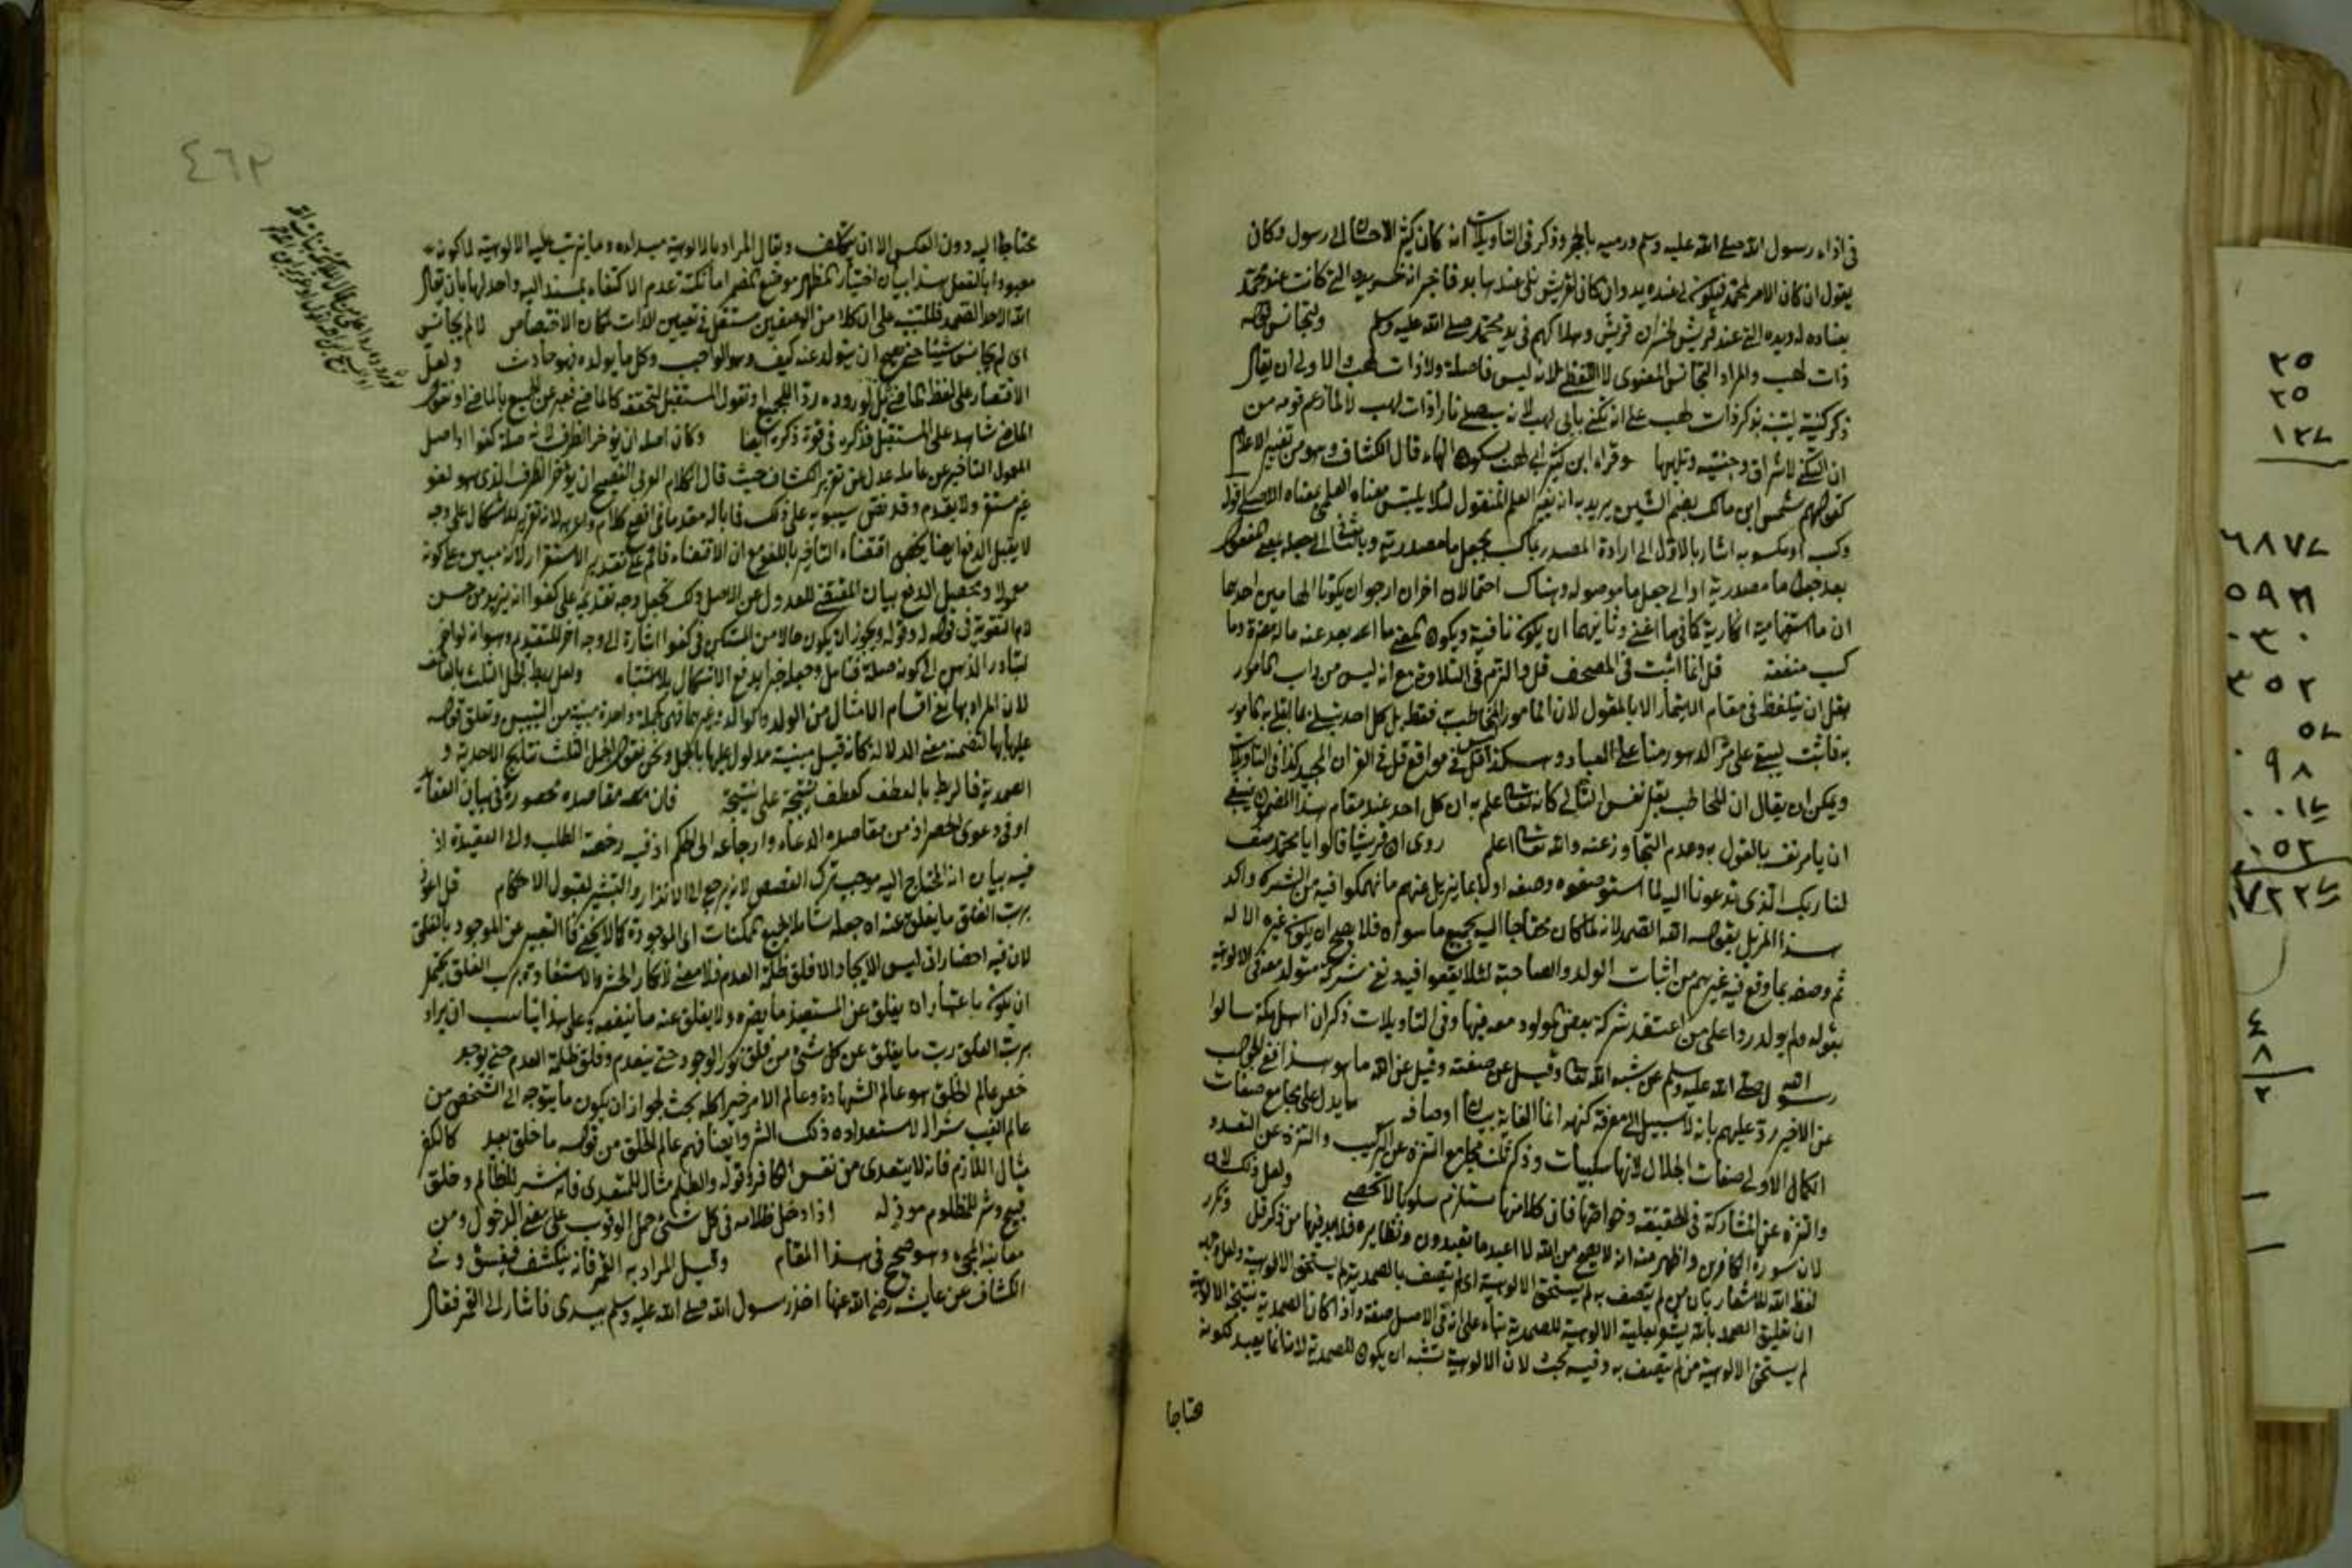 في اذاء رسول الله صلى الله عليه وسلم ورميه بالحجر وذكر في التأويلات انه كان كثير الاحسان الى رسول وكان
يقول ان كان الامر لمحمد فيكون لي عنده يد وان كان لقريش فلي عندها يد فاخبر انه خسر يده التي كانت عند محمد
بعناده له ويده التي عند قريش لخسران قريش وهلاكهم في يد محمد صلى الله عليه وسلم وليجانس قوله
ذات لهب والمراد التجانس المعنوي لا اللفظي لانه ليس فاصلة ولا ذات لهب والاولى ان يقال
ذكر كنيته ليتنبه بذكر ذات لهب على انه كني بابي لهب لانه يصلى نارا ذات لهب لا لما زعم قومه من
ان التكني لاشراق وجنتيه وتلهبها وقراء ابن كثير ابي لهب بسكون الهاء قال الكشاف وهو من تغيير الاعلام
كقولهم شمس ابن مالك بضم الشين يريد به انه يغير العلم المنقول لئلا يلتبس معناه العلمي بمعناه الاصلي قوله
وكسبه او مكسوبه اشار بالاول الى ارادة المصدر بما كسب بجعل ما مصدرية وبالثاني الى جعله بمعنى المفعول
بعد جعل ما مصدرية او الى جعل ما موصولة وهناك احتمالان اخران ارجو ان يكونا الهامين احدهما
ان ما استفهامية انكارية كما في ما اغنى وثانيهما ان يكون نافية ويكون المعنى ما اعد بعد عنه ماله مضرة وما
كسب منفعة قل انما اثبت في المصحف قل والتزم في التلاوة مع انه ليس من داب المأمور
بقل ان يتلفظ في مقام الايتمار الا بالمقول لان المأمور ليس المخاطب فقط بل كل احد يبتلى بما ابتلي به المأمور
به فاثبت ليبقى على مر الدهور منا على العباد وهكذا قل في مواقع قل في القران المجيد كذا في التأويلات
ويمكن ان يقال ان المخاطب بقل نفس التالي كانه تعالى علم به ان كل احد عند مقام هذا المضمون ينبغي
ان يامر نفسه بالقول به وعدم التجاوز عنه والله تعالى اعلم روي ان قريشا قالوا يا محمد صف
لنا ربك الذي تدعونا اليه لما استوصفوه وصفه اولا بما يزيل عنهم ما انهمكوا فيه من الشرك واكد
هذا المزيل بقوله الله الصمد لانه لما كان محتاجا اليه جميع ما سواه فلا يصح ان يكون غيره الا له
ثم وصفه بما وقع فيه غيرهم من اثبات الولد والصاحبة لئلا يقعوا فيه ونفى شركة متولد معه في الالوهية
بقوله ولم يولد ردا على من اعتقد شركة بعض المولود معه فيها وفي التاويلات ذكر ان اهل مكة سالوا
رسول الله صلى الله عليه وسلم عن شبه الله تعالى وقيل عن صفته وقيل عن الله ما هو هذا فقع الجواب
عن الاخير رد عليهم بانه لا سبيل الى معرفة كنهه انما الغاية بيان اوصافه ما يدل على مجامع صفات
الكمال الاولى صفات الجلال لانها سلبيات وذكر ثلث مجامع التنزه عن التركيب والتنزه عن التعدد
والتنزه عن المشاركة في الحقيقة وخواصها فان كلا منها ستلزم سلوبا لا تحصى ولعل ذلك لان
لان سورة الكافرين واظهر منه انه لا يصح من الله لا اعبد ما تعبدون ونظايره فلا بد فيها من ذكر قل وتكرر
لفظ الله للاشعار بان من لم يتصف به لم يستحق الالوهية اي لم يتصف بالصمدية لم يستحق الالوهية ولعل وجهه
ان تعليق الصمد بالله يشعر بعلية الالوهية للصمدية بناء على انه في الاصل صفة واذا كان الصمدية نتيجة الالوهية
لم يستحق الالوهية من لم يتصف به وفيه بحث لان الالوهية تشبه ان يكون للصمدية لانه انما يعبد لكونه
محتاجا
٤٦٢
محتاجا اليه دون العكس الا ان يتكلف ويقال المراد بالالوهية مبداه وما يترتب عليه الالوهية لا كونه
معبودا بالفعل هذا بيان اختيار المظهر موضع المضمر اما نكتة عدم الاكتفاء بمسند اليه واحد لها بان يقال
الله الاحد الصمد فللتنبيه على ان كلا من الوصفين مستقل في تعيين الذات لمكان الاختصاص لانه لم يجانس
اي لم يجانس شيئا حتى يصح ان يتولد عنه كيف وهو الواجب وكل ما يولده فهو حادث ولعل
الاقتصار على لفظ الماضي لوروده ردا للجميع او نقول المستقبل لتحققه كالماضي فعبر عن الجميع بالماضي او نقول
الماضي شاهد على المستقبل فذكره في قوة ذكره ايضا وكان اصله ان يؤخر الظرف لانه صلة كفوا اذ اصل
المعمول التاخير عن عامله عدل عن تقرير الكشاف حيث قال الكلام العربي الفصيح ان يؤخر الظرف الذي هو لغو
غير مستقر ولا يقدم وقد نص سيبويه على ذلك فما باله مقدما في افصح كلام واعربه لانه تقرير للاشكال على وجه
لا يقبل الدفع
معمولا وتحصيل الدفع بيان المقتضي للعدول عن الاصل وكـ تجعل وجه تقديمه على كفوا انه يزيد من حسن
لام التقوية في قوله له وقوله ويجوز ان يكون حالا من المستكن في كفوا اشارة الى وجه اخر للتقديم وهو انه لو اخر
لتبادر الذهن الى كونه صلة فتامل وجعله خبرا يدفع الاشكال بلا اشتباه ولعل ربط الجمل الثلث بالعاطف
لان المراد بها نفي اقسام الامثال من الولد والوالد وغيرهما فهي كجملة واحدة
عليها بها لتضمنه معنى الدلالة كانه قيل مبينة مدلول عليها بالجمل ونحن نقول الجمل الثلث نتايج الاحدية و
الصمدية فالربط بالعطف كعطف نتيجة على نتيجة فان مقاصده محصورة في بيان العقائد
او في دعوى الحصر اذ من مقاصده الدعاء وارجاعه الى الحكم اذ فيه رخصة الطلب والى العقيدة اذ
فيه بيان انه المحتاج اليه موجب ترك القصص لانه يرجع الى الانذار والتبشير لقبول الاحكام قل اعوذ
برب الفلق ما يفلق عنه اه جعله شاملا لجميع الممكنات اي الموجودة كما لا يخفى فالتعبير عن الموجود بالفلق
لان فيه احضار ان ليس الايجاد الا فلق ظلمة العدم فلا معنى لانكار الحشر والاستعاذة برب الفلق يحتمل
ان يكون باعتبار ان يفلق عن المستعيذ ما يضره ولا يفلق عنه ما ينفعه وعلى هذا يناسب ان يراد
برب الفلق رب ما يفلق عن كل شيء من فلق نور الوجود حتى ينعدم وفلق ظلمة العدم حتى يوجد
خص عالم الخلق هو عالم الشهادة وعالم الامر خير كله بحث لجواز ان يكون ما يتوجه الى الشخص من
عالم الغيب شرا له لاستعداده ذلك الشر وايضا فهم عالم الخلق من قوله ما خلق بعيد كالكفر
مثال اللازم فانه لا يتعدى من نفس الكافر وقوله والظلم مثال للمتعدي فانه شر للظالم وخلق
قبيح وشر للمظلوم موذ له اذا دخل ظلامه في كل شيء حمل الوقوب على معنى الدخول ومن
معانيه المجيء وهو صح في هذا المقام وقيل المراد به القمر فانه ينكشف فيغسق وفي
الكشاف عن عايشة رضي الله عنها اخذ رسول الله صلى الله عليه وسلم بيدي فاشار الى القمر فقال